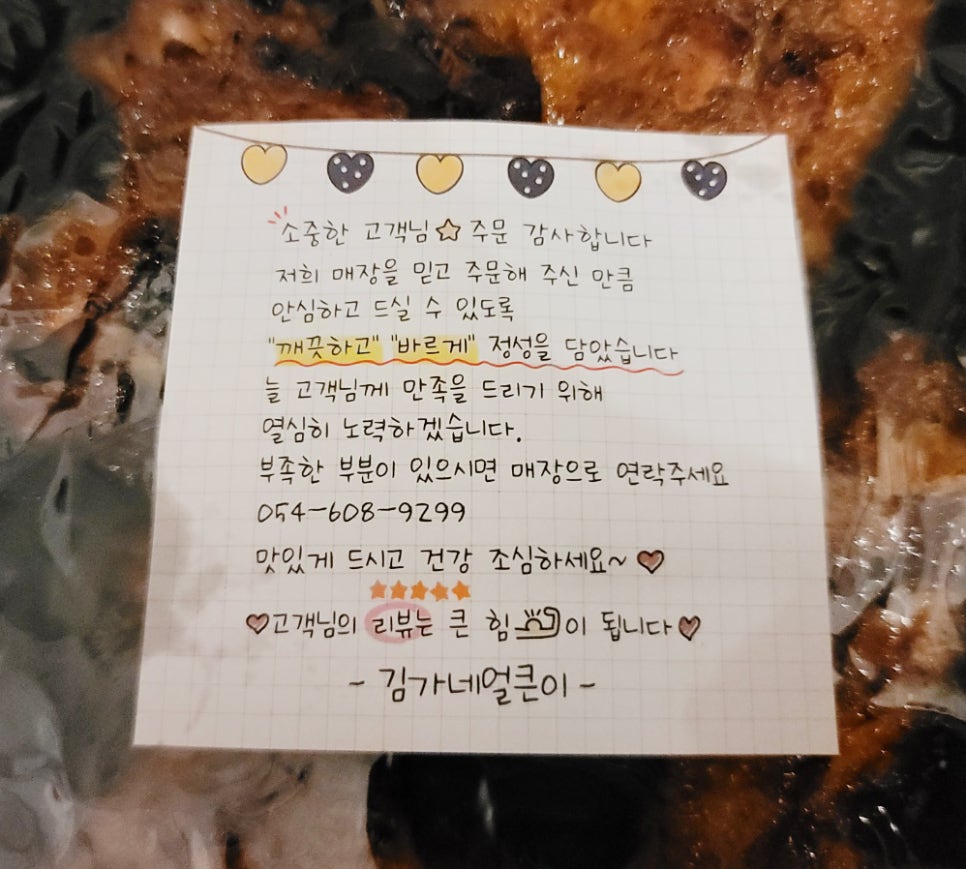 소중한 고객님☆ 주문 감사합니다
저희 매장을 믿고 주문해 주신 만큼
안심하고 드실 수 있도록
"깨끗하고" "바르게" 정성을 담았습니다
늘 고객님께 만족을 드리기 위해
열심히 노력하겠습니다.
부족한 부분이 있으시면 매장으로 연락주세요
054-608-9299
맛있게 드시고 건강 조심하세요~ ♥
★★★★★
♥고객님의 리뷰는 큰 힘이 됩니다♥
- 김가네얼큰이 -